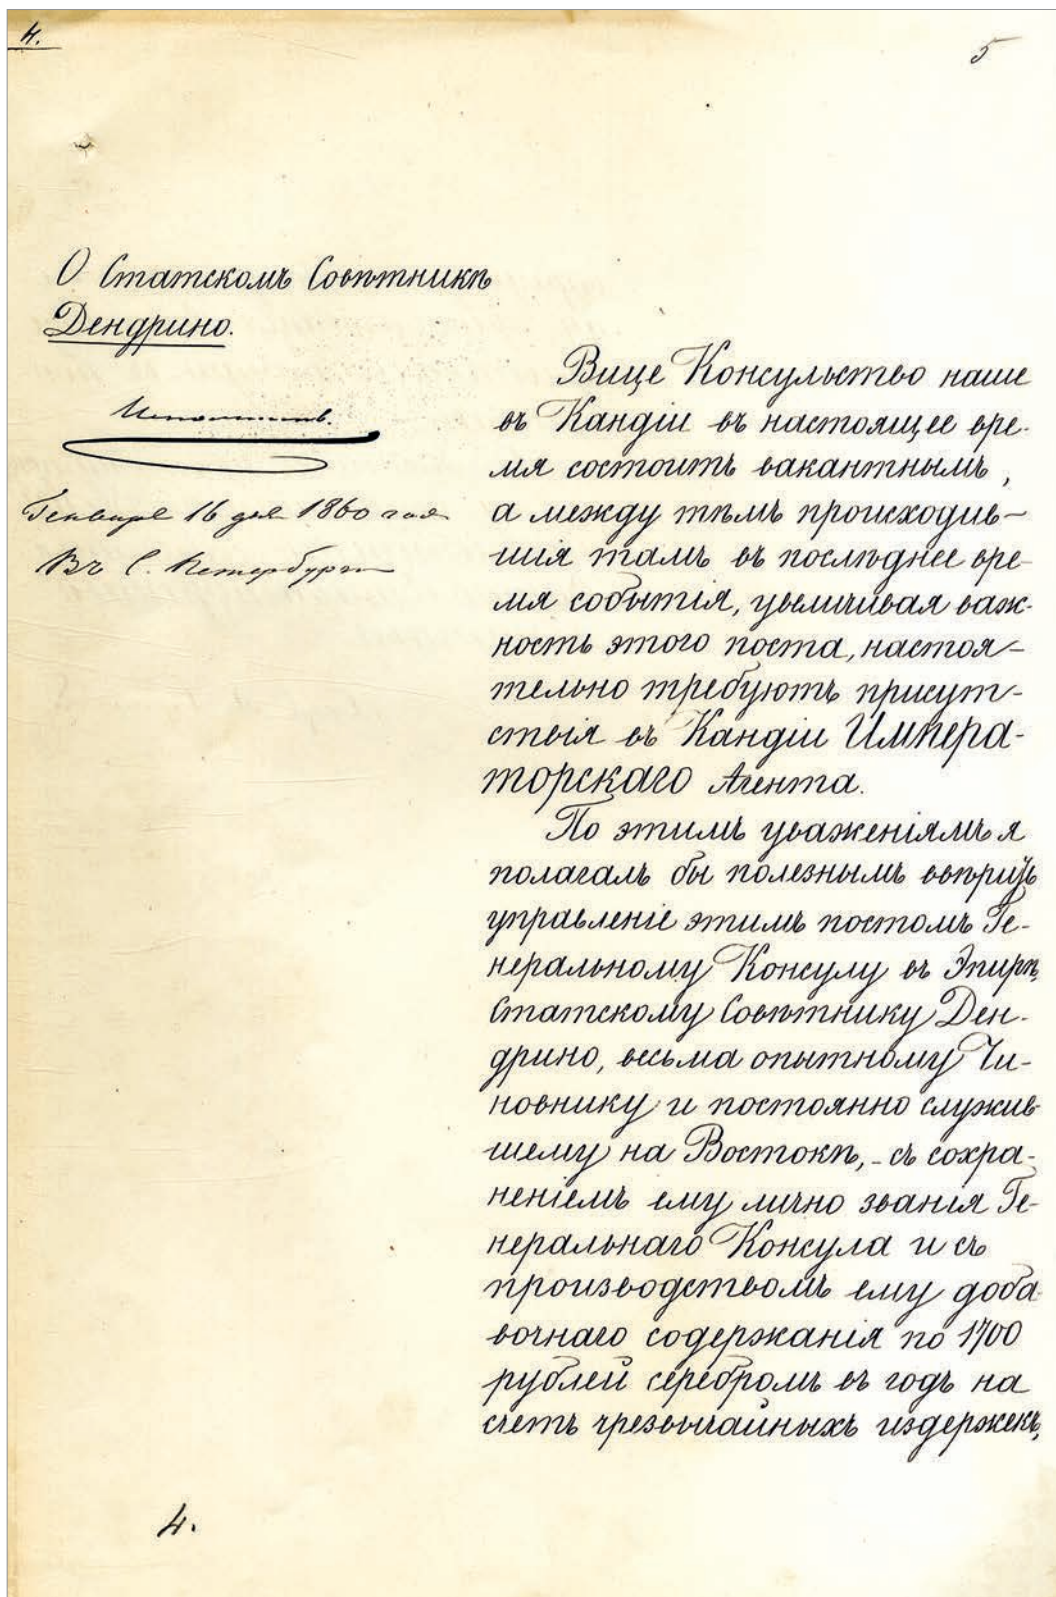 4.
5
О Статскомъ Совѣтникѣ
Дендрино.
Генваря 16 дня 1860 года
Въ С. Петербургѣ
Вице Консульство наше
въ Кандіи въ настоящее вре-
мя состоитъ вакантнымъ,
а между тѣмъ происходив-
шія тамъ въ послѣднее вре-
мя событія, увеличивая важ-
ность этого поста, настоя-
тельно требуютъ присут-
ствія въ Кандіи Импера-
торскаго Агента.
По этимъ уваженіямъ я
полагалъ бы полезнымъ ввѣрить
управленіе этимъ постомъ Ге-
неральному Консулу въ Эпирѣ,
Статскому Совѣтнику Ден-
дрино, весьма опытному Чи-
новнику и постоянно служив-
шему на Востокѣ, - съ сохра-
неніемъ ему лично званія Ге-
неральнаго Консула и съ
производствомъ ему доба-
вочнаго содержанія по 1700
рублей серебромъ въ годъ на
счетъ чрезвычайныхъ издержекъ,
4.